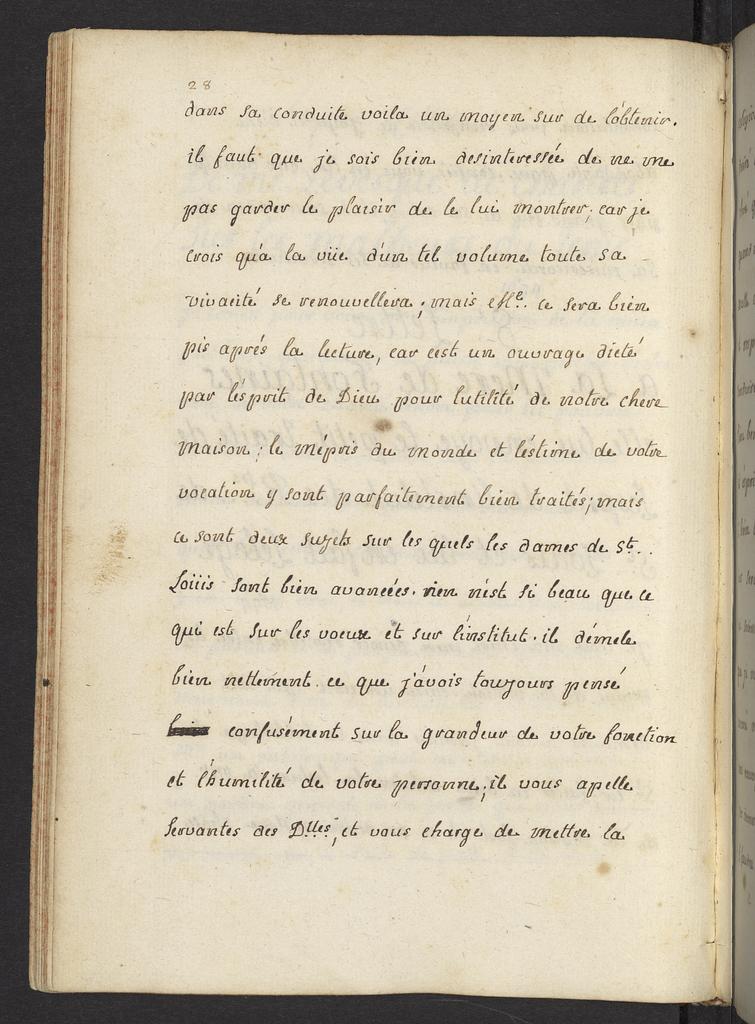 28
dans sa conduite voila un moyen sur de l'obtenir.
il faut que je sois bien desinteressée de ne me
pas garder le plaisir de le lui montrer; car je
crois qu'a la vüe d'un tel volume toute sa
vivacité se renouvellera; mais elle. ce sera bien
pis aprés la lecture, car c'est un ouvrage dicté
par l'ésprit de Dieu pour lutilité de notre chere
maison; le mépris du monde et l'éstime de votre
vocation y sont parfaitement bien traités; mais
ce sont deux sujets sur les quels les dames de St.
Loüis sont bien avancées. rien n'est si beau que ce
qui est sur les voeux et sur l'institut. il démele
bien nettement. ce que j'avois toujours pensé
confusément sur la grandeur de votre fonction
et l'humilité de votre personne; il vous apelle
servantes des Dlles, et vous charge de mettre la